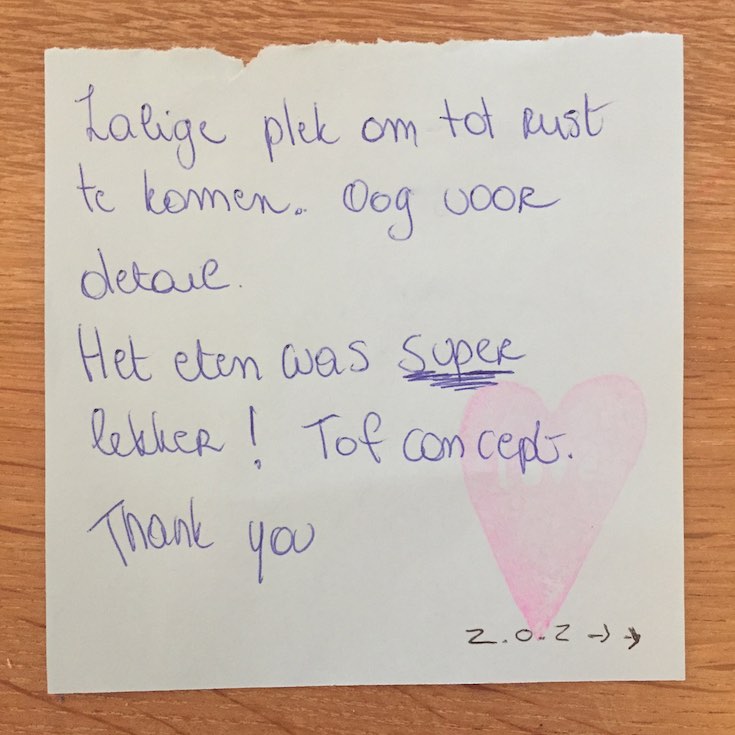 Zalige plek om tot rust
te komen. Oog voor
detail.
Het eten was super
lekker! Tof concept.
Thank you
Z.O.Z →→